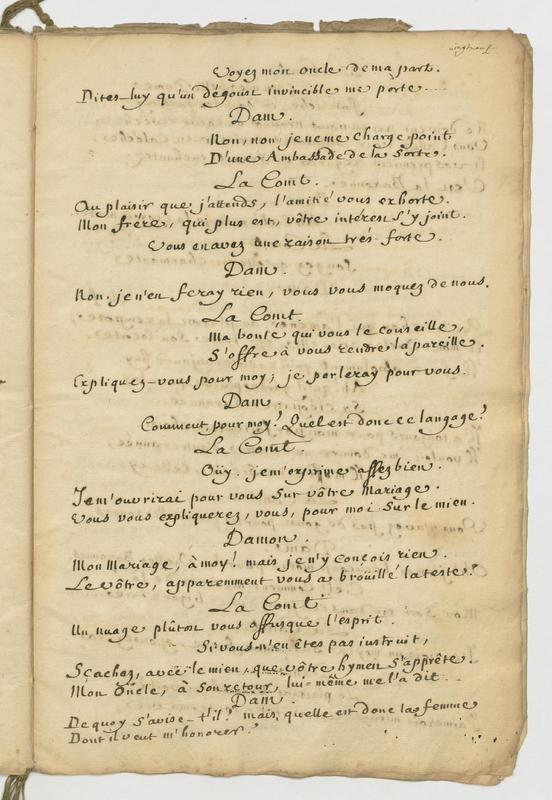 vingtneuf
Voyez mon oncle de ma part.
Dites-luy qu'un dégoust invincible me porte....
Dam.
Non, non, je ne me charge point
D'une Ambassade de la Sorte.
La Comt.
Au plaisir que j'attends, l'amitié vous exhorte.
Mon frére, qui plus est, vôtre interest s'y joint.
Vous en avez une raison trés forte.
Dam.
Non, je n'en feray rien, vous vous moquez de nous.
La Comt.
Ma bonté qui vous le conseille,
S'offre à vous rendre la pareille.
Expliquez-vous pour moy; je parleray pour vous.
Dam.
Comment, pour moy? Quel est donc ce langage?
La Comt.
Oüy. je m'exprime assez bien.
Je m'ouvrirai pour vous Sur vôtre Mariage.
Vous vous expliquerez, vous, pour moi Sur le mien.
Damon.
Mon Mariage, à moy! mais je n'y conçois rien.
Le vôtre, apparemment vous a broüillé la teste?
La Comt
Un nuage plûtost vous offusque l'esprit.
Si vous n'en êtes pas instruit,
Sçachez, avec le mien, que vôtre hymen s'apprête.
Mon Oncle, à son retour, lui-même me l'a dit.
Dam.
De quoy s'avise-t'il? mais, quelle est donc la femme
Dont il veut m'honorer?